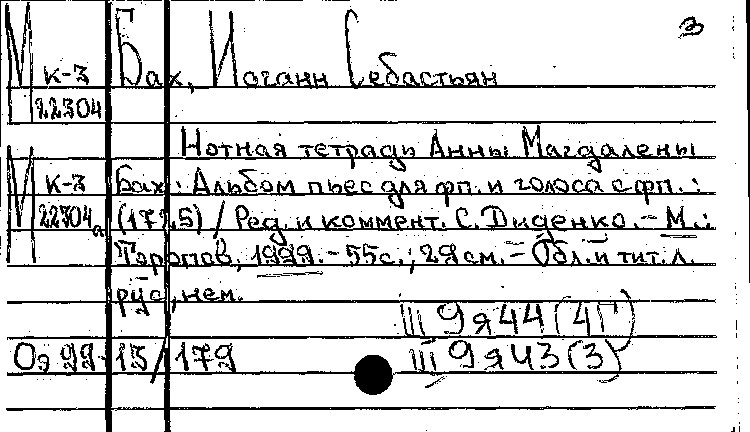 3
М к-3 Бах, Иоганн Себастьян
22304
Нотная тетрадь Анны Магдалены
М к-3 Бах : Альбом пьес для фп. и голоса с фп. :
22304а (1725) / Ред. и коммент. С. Диденко. - М. :
Торопов, 1999. - 55с. ; 29 см. - Обл. и тит. л.
рус., нем.
III 9я44(4Г)
Оэ 99-13/179 III 9я43(3)